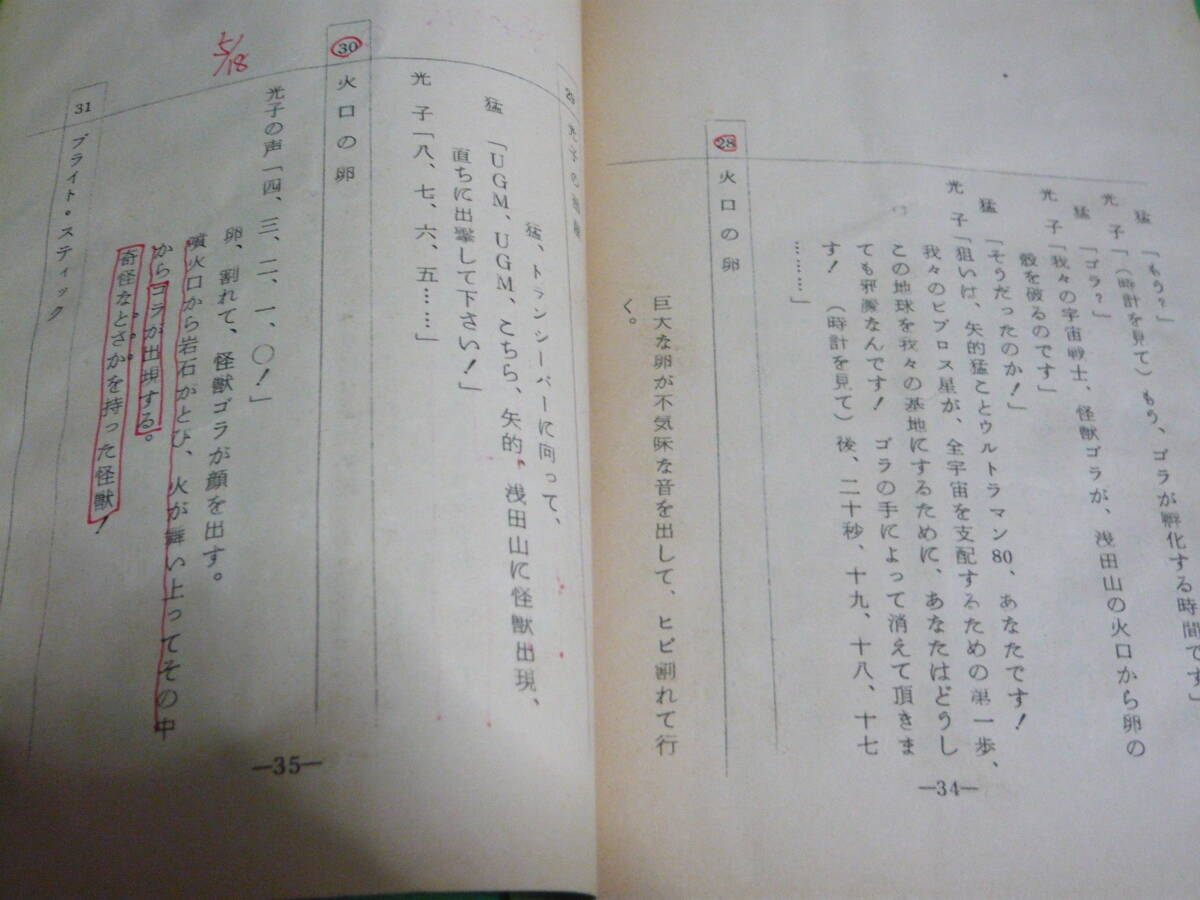 猛「もう?」
光子「(時計を見て)もう、ゴラが孵化する時間です」
猛「ゴラ?」
光子「我々の宇宙戦士、怪獣ゴラが、浅田山の火口から卵の
殻を破るのです」
猛「そうだったのか!」
光子「狙いは、矢的猛ことウルトラマン80、あなたです!
我々のビブロス星が、全宇宙を支配するための第一歩、
この地球を我々の基地にするために、あなたはどうし
ても邪魔なんです! ゴラの手によって消えて頂きま
す! (時計を見て)後、二十秒、十九、十八、十七
………」
28 火口の卵
巨大な卵が不気味な音を出して、ヒビ割れて行
く。
—34—
29 光子の
猛、トランシーバーに向って、
猛「UGM、UGM、こちら、矢的、浅田山に怪獣出現、
直ちに出撃して下さい!」
光子「八、七、六、五……」
30 火口の卵
5/18
光子の声「四、三、二、一、〇!」
卵、割れて、怪獣ゴラが顔を出す。
噴火口から岩石がとび、火が舞い上ってその中
からゴラが出現する。
奇怪なとさかを持った怪獣!
31 ブライト・スティック
—35—